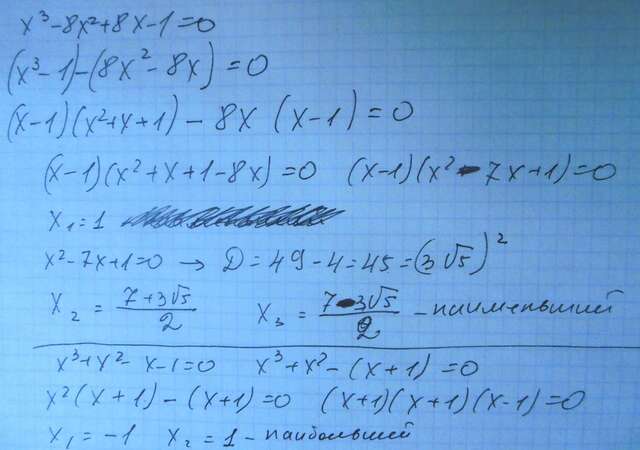 x³-8x²+8x-1=0
(x³-1)-(8x²-8x)=0
(x-1)(x²+x+1)-8x(x-1)=0
(x-1)(x²+x+1-8x)=0 (x-1)(x²-7x+1)=0
x₁=1
x²-7x+1=0 → D=49-4=45=(3√5)²
x₂=(7+3√5)/2 x₃=(7-3√5)/2 - наименьший
x³+x²-x-1=0 x³+x²-(x+1)=0
x²(x+1)-(x+1)=0 (x+1)(x+1)(x-1)=0
x₁=-1 x₂=1 - наибольший